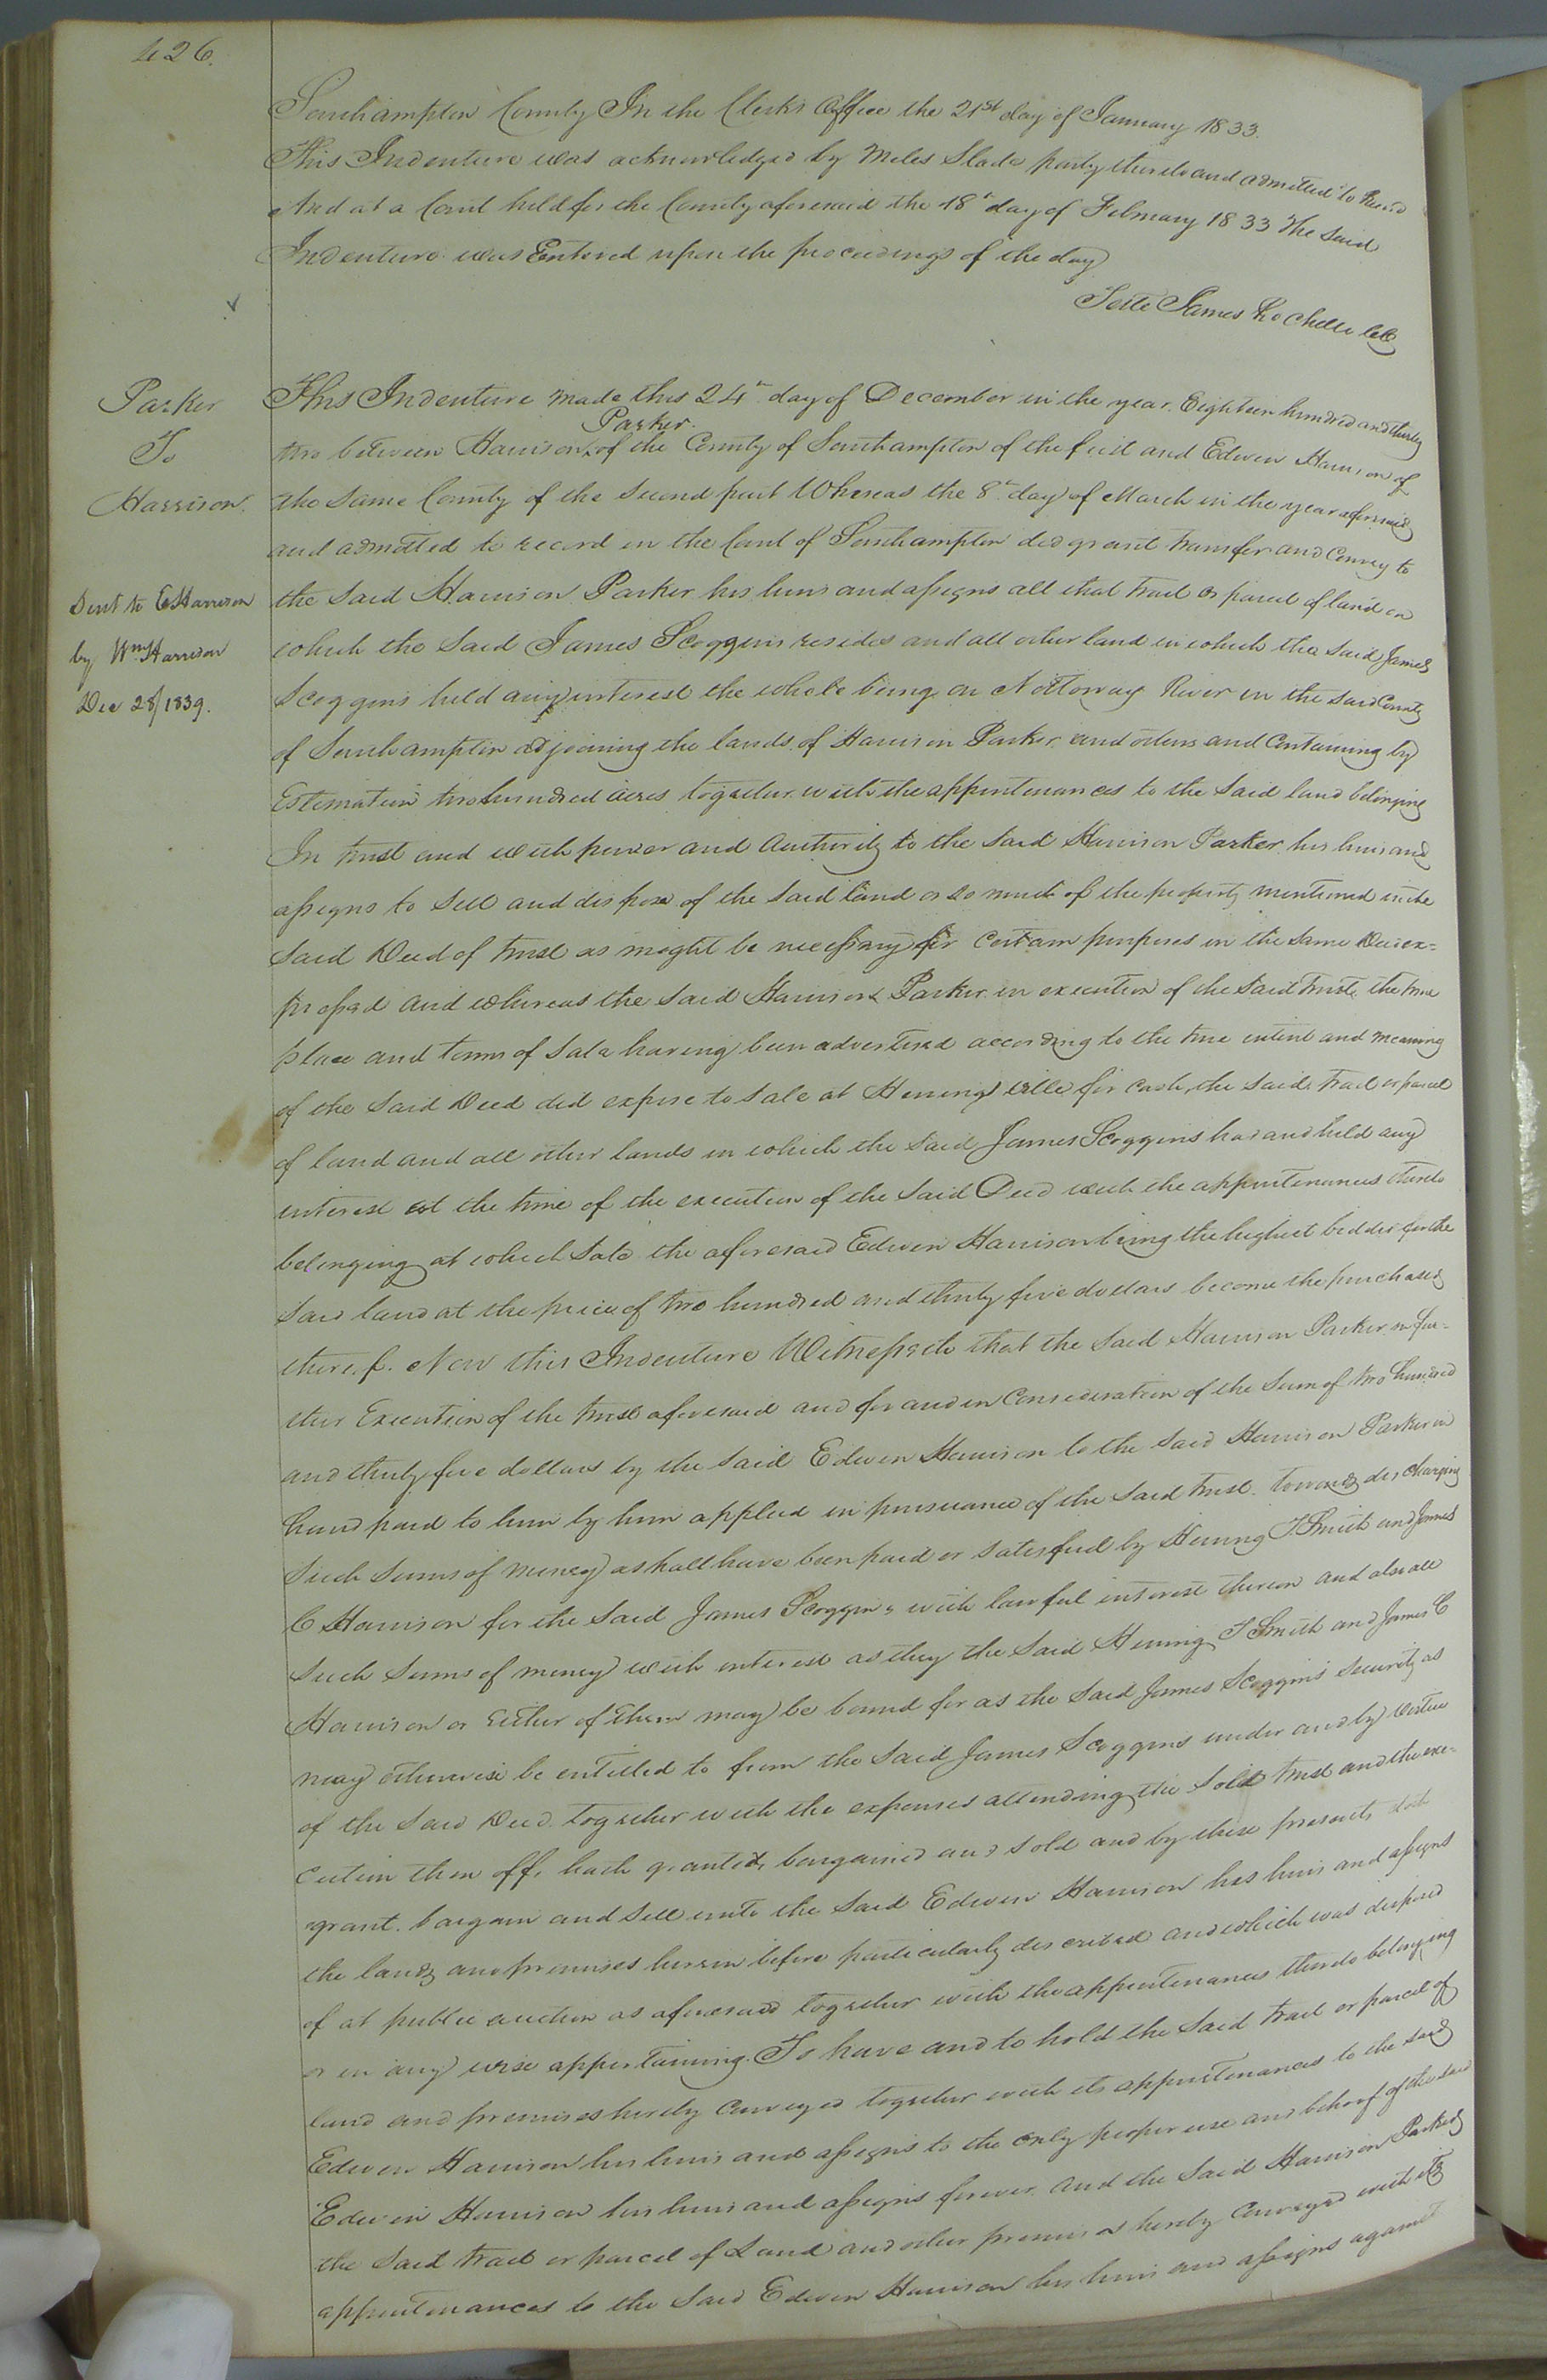 426.
Southampton County In the Clerks Office the 21st day of January 1833.
This Indenture was acknowledged by Miles Slade party thereto and admitted to Record
And at a Court held for the County aforesaid the 18th day of February 1833 The said
Indenture was Entered upon the proceedings of the day
Teste James Rochelle
Parker
To
Harrison.
Sent to E Harrison
by Wm Harrison
Dec 28/1839.
This Indenture made this 24th day of December in the year Eighteen hundred and thirty
two between Harrison Parker of the County of Southampton of the first and Edwin Harrison of
the same County of the second part Whereas the 8th day of March in the year aforesaid
and admitted to record in the Court of Southampton did grant transfer and Convey to
the said Harrison Parker his heirs and assigns all that tract or parcel of land on
which the said James Scoggins resides and all other land in which the said James
Scoggins held any interest the whole being on Nottoway River in the said County
of Southampton adjoining the lands of Harrison Parker and others and Containing by
Estimation two hundred acres together with the appurtenances to the said land belonging
In trust and with power and Authority to the said Harrison Parker his heirs and
assigns to sell and dispose of the said land or so much of the property mentioned in the
said Deed of trust as might be necessary for certain purposes in the same Deed ex=
pressed and whereas the said Harrison Parker in execution of the said trust the time
place and terms of sale having been advertised according to the true intent and meaning
of the said Deed did expose to sale at Hennings ville for cash, the said tract or parcel
of land and all other lands in which the said James Scoggins had and held any
interest at the time of the execution of the said Deed with the appurtenances thereto
belonging at which sale the aforesaid Edwin Harrison being the highest bidder for the
said land at the price of two hundred and thirty five dollars become the purchaser
thereof. Now this Indenture Witnesseth that the said Harrison Parker in fur=
ther Execution of the trust aforesaid and for and in Consideration of the Sum of two hundred
and thirty five dollars by the said Edwin Harrison to the said Harrison Parker in
hand paid to him by him applied in pursuance of the said trust towards discharging
such sums of money as shall have been paid or satisfied by Hening T. Smith and James
C Harrison for the said James Scoggins with lawful interest thereon and also all
such sums of money with interest as they the said Hening T Smith and James C
Harrison or Either of them may be bound for as the said James Scoggins security as
may otherwise be entitled to from the said James Scoggins under and by virtue
of the said Deed together with the expenses attending the said trust and the exe-
cution there off, hath granted, bargained and sold and by these presents doth
grant. bargain and sell unto the said Edwin Harrison his heirs and assigns
the lands and premises herein before particularly described and which was disposed
of at public auction as aforesaid together with the appurtenances thereto belonging
or in any wise appertaining. To have and to hold the said tract or parcel of
land and premises hereby Conveyed together with its appurtenances to the said
Edwin Harrison his heirs and assigns to the only proper use and behoof of the said
Edwin Harrison his heirs and assigns forever and the said Harrison Parker
the said tract or parcel of Land and other premises hereby Conveyed with its
appurtenances to the said Edwin Harrison his heirs and assigns against